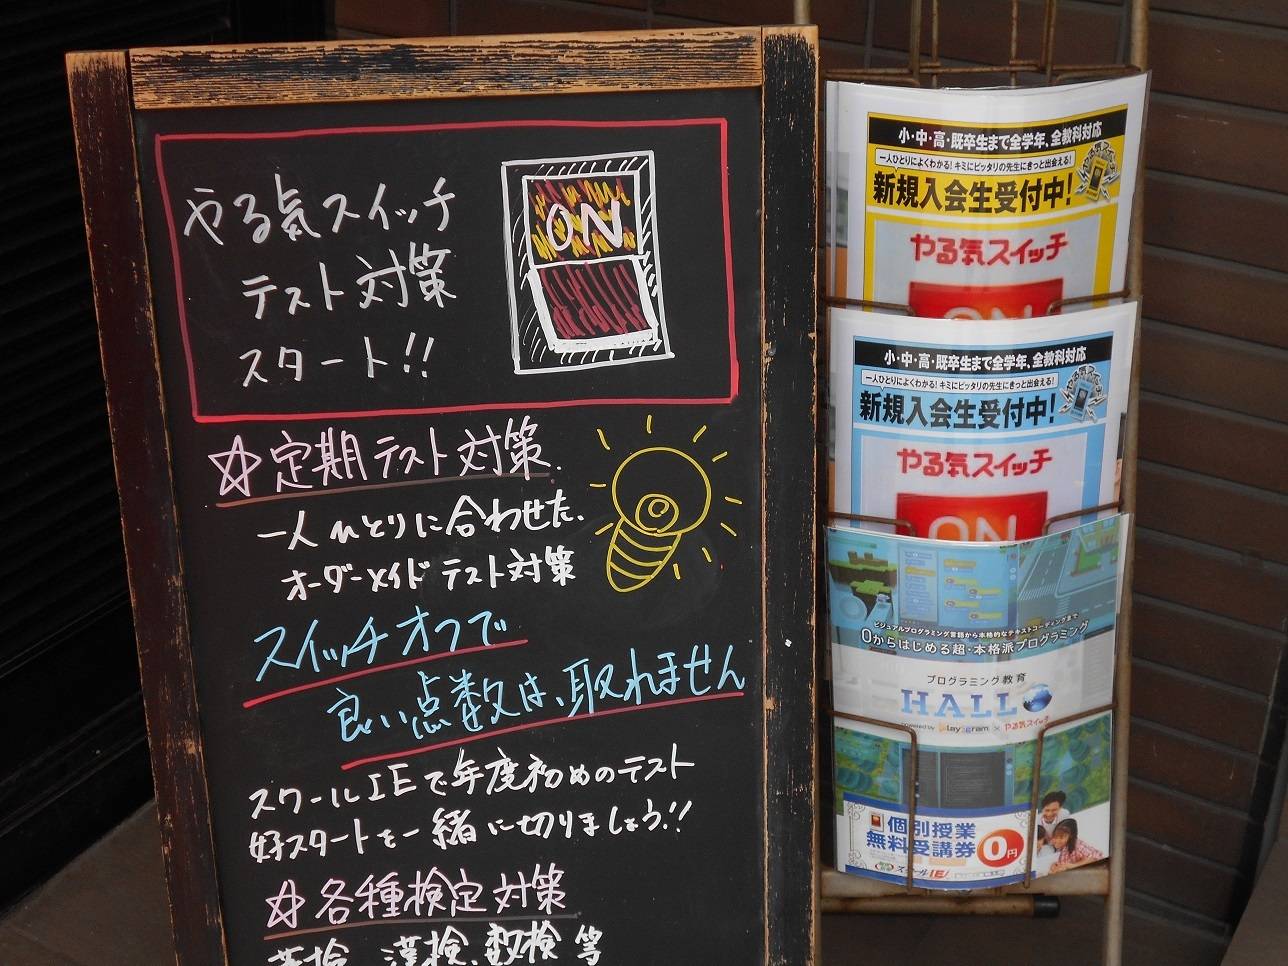 やる気スイッチ
テスト対策
スタート!!
ON
☆定期テスト対策
一人ひとりに合わせた、
オーダーメイドテスト対策
スイッチオフで
良い点数は、取れません
スクールIEで年度初めのテスト
好スタートを一緒に切りましょう!!
☆各種検定対策
英検、漢検、数検等
小・中・高・既卒生まで全学年、全教科対応
一人ひとりによくわかる!キミにピッタリの先生にきっと出会える!
新規入会生受付中!
やる気スイッチ
やる気スイッチ
ON
小・中・高・既卒生まで全学年、全教科対応
一人ひとりによくわかる!キミにピッタリの先生にきっと出会える!
新規入会生受付中!
やる気スイッチ
やる気スイッチ
ON
ビジュアルプログラミング言語から本格的なテキストコーディングまで
0からはじめる超・本格派プログラミング
プログラミング教育
HALLO
powered by Playgram × やる気スイッチ
個別授業
無料受講券
0円
スクールIE